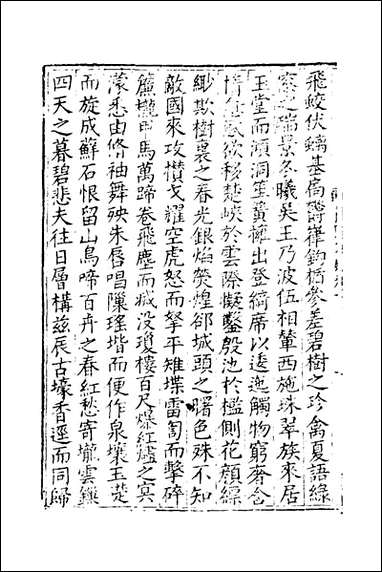 飛蛟伏螭基扃鬱嵂鈎楯參差碧樹之珍禽夏語綠
窓之瑞景冬曦吳王乃波伍相輦西施珠翠族來居
玉堂而澒洞笙簧擁出登綺席以逶迤觸物窮奢含
情愈惑欲移楚峽於雲際擬鑿殷池於檻側花顏縹
緲欺樹裏之春光銀焰熒煌卻城頭之曙色殊不知
敵國來攻攢戈耀空虎怒而拏平雉堞雷訇而擊碎
簾櫳甲馬萬蹄卷飛塵而滅沒瓊樓百尺爆紅爐之冥
濛悉由脩袖舞殃朱唇唱隟瑤堦而便作泉壤玉甃
而旋成蘚石恨留山鳥啼百卉之春紅愁寄壠雲鏁
四天之暮碧悲夫往日層構茲辰古壕香逕而同歸